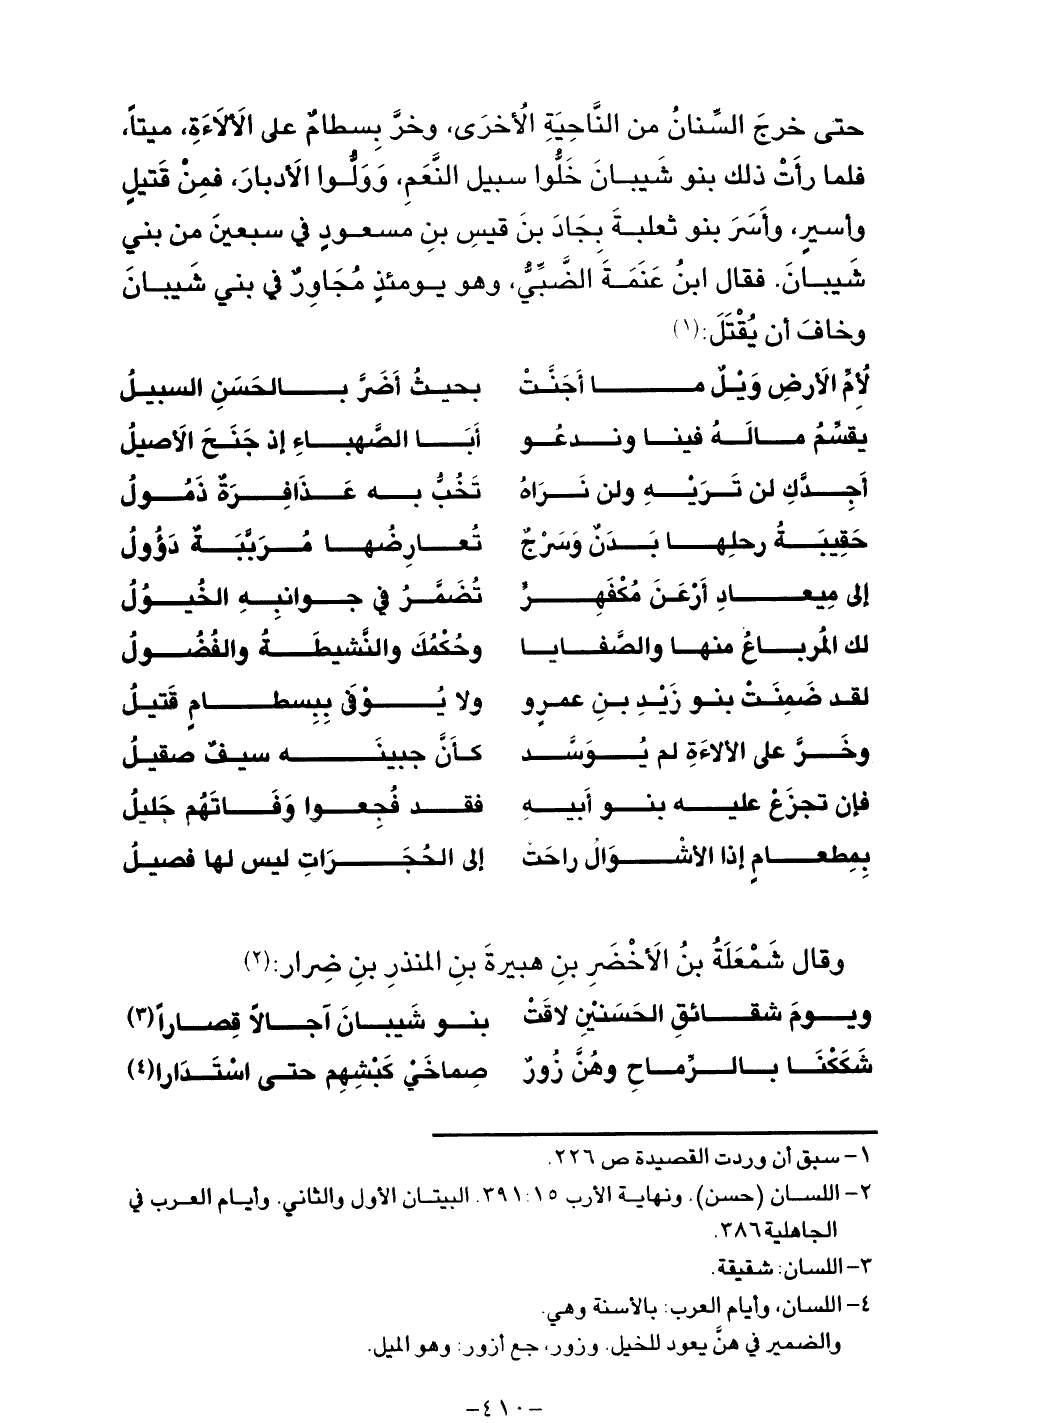 حتى خرجَ السِّنانُ من النَّاحِيَةِ الُأخرَى، وخرَّ بِسطامٌ على الَألَاءَةِ، ميتاً،
فلما رأَتْ ذلك بنو شَيبـانَ خَلُّوا سبيل النَّعَمِ، وَوَلَّـوا الَأدبارَ، فمِنْ قَتيلٍ
وأسيرٍ، وأَسَرَ بنو ثعلبـةَ بِجَادَ بنَ قيسِ بنِ مسعـودٍ في سبعينَ من بني
شَيبـانَ. فقال ابنُ عَنَمَـةَ الضَّبِّيُّ، وهو يـومئذٍ مُجَاوِرٌ في بني شَيبـانَ
وخافَ أن يُقْتَلَ:(١)
لُأمِّ الَأرضِ وَيْلٌ مـا أجَنَّتْ بحيـثُ أضَرَّ بـالحَسَنِ السبيلُ
يقسِّمُ مـالَـهُ فينـا ونـدعُـو أبَـا الصَّهبـاءِ إذ جَنَـحَ الَأصيلُ
أجِـدَّكِ لن تَـرَيْـهِ ولن نَـرَاهُ تَخُبُّ بـه عَـذَافِـرَةٌ ذَمُـولُ
حَقِيبَـةُ رحلِهـا بَـدَنٌ وَسَرْجٌ تُعـارِضُهـا مُـرَبَّبَـةٌ دَؤُولُ
إلى مِيعـادِ أرْعَـنَ مُكْفَهِـرٍّ تُضَمَّـرُ في جـوانبِـهِ الخُيـوُلُ
لك المُربـاعُ منهـا والصَّفـايـا وحُكْمُكَ والنَّشيطَـةُ والفُضُـولُ
لقد ضَمِنَـتْ بنـو زَيْـدِ بـنِ عمـرٍو ولا يُـوْفَى بِبِسطـامٍ قَتيلُ
وخَـرَّ على الألاءَةِ لم يُـوَسَّـد كـأنَّ جبينَـه سيـفٌ صقيلُ
فإن تجزَعْ عليـه بنـو أبيـهِ فقـد فُجِعـوا وَفَـاتَهُم جَليلُ
بِمِطعـامٍ إذا الأشْـوَالُ راحَتْ إلى الحُجَـرَاتِ ليس لها فصيلُ
وقال شَمْعَلَةُ بنُ الَأخْضَرِ بنِ هبيرةَ بنِ المنذرِ بنِ ضِرار:(٢)
ويـومَ شقـائقِ الحَسَنَيْنِ لاقَتْ بنـو شَيبـانَ آجـالاً قِصـاراً(٣)
شَكَكْنَـا بـالـرِّمـاحِ وهُنَّ زُورٌ صِماخَيْ كَبْشِهِم حتـى اسْتَـدَارا(٤)
١– سبق أن وردت القصيدة ص ٢٢٦.
٢– اللسـان (حسن). ونهايـة الأرب ١٥:٣٩١. البيتـان الأول والثاني. وأيـام العـرب في
الجاهلية ٣٨٦.
٣– اللسان: شقيقة.
٤– اللسان، وأيام العرب: بالأسنة وهي.
والضمير في هنَّ يعود للخيل. وزور، جمع أزور: وهو الميل.
–٤١٠–